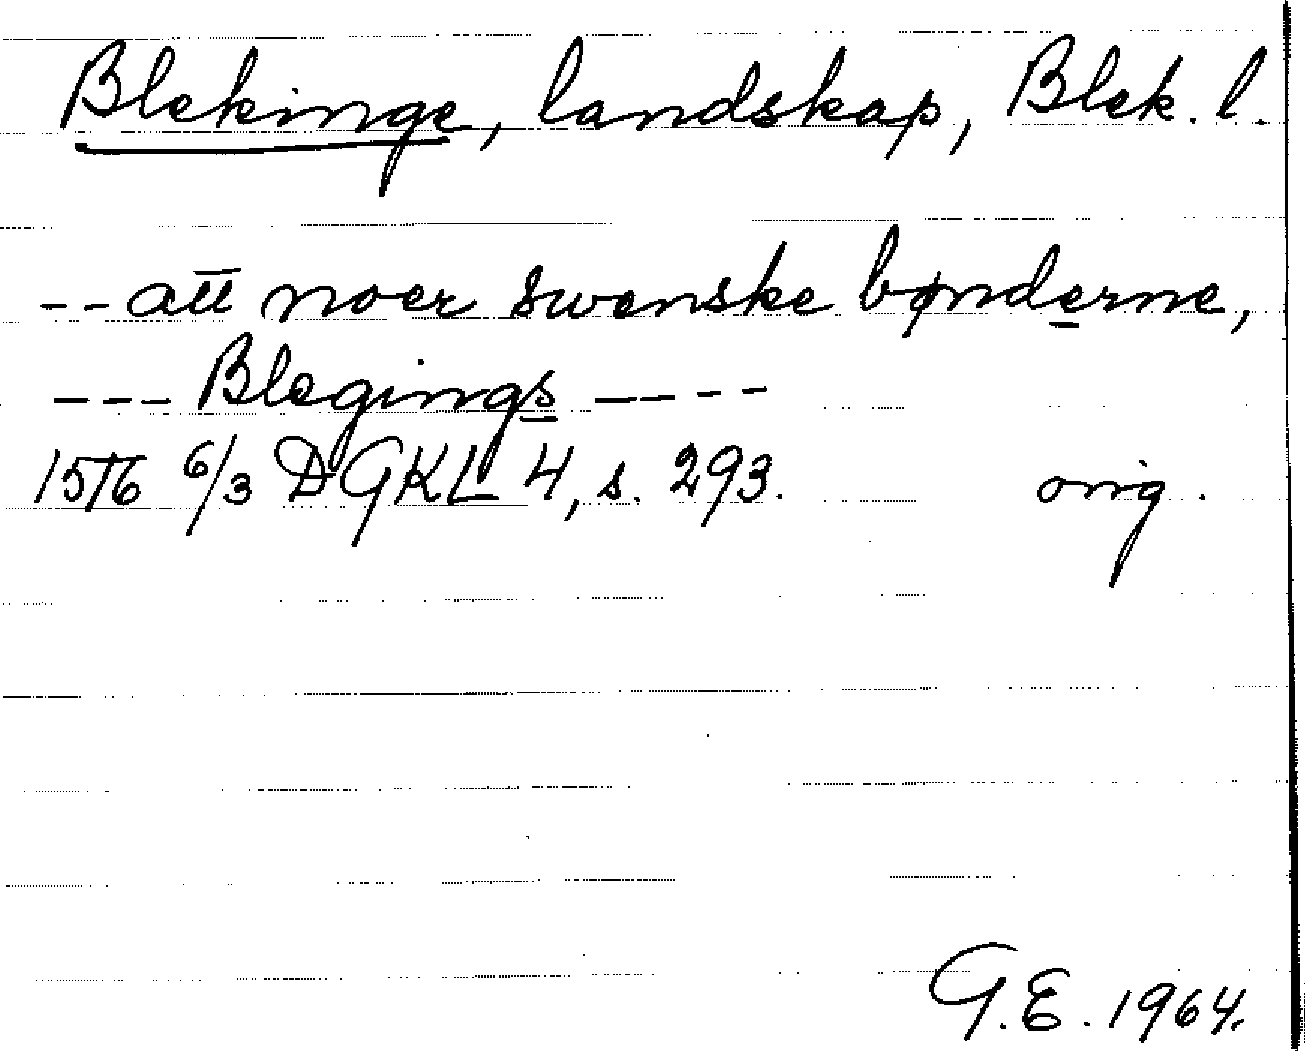 Blekinge, landskap, Blek. l.
-- att noer swenske bønderne,
--- Blegings ----
1516 6/3 DGKL 4, s. 293. orig.
G.E. 1964.